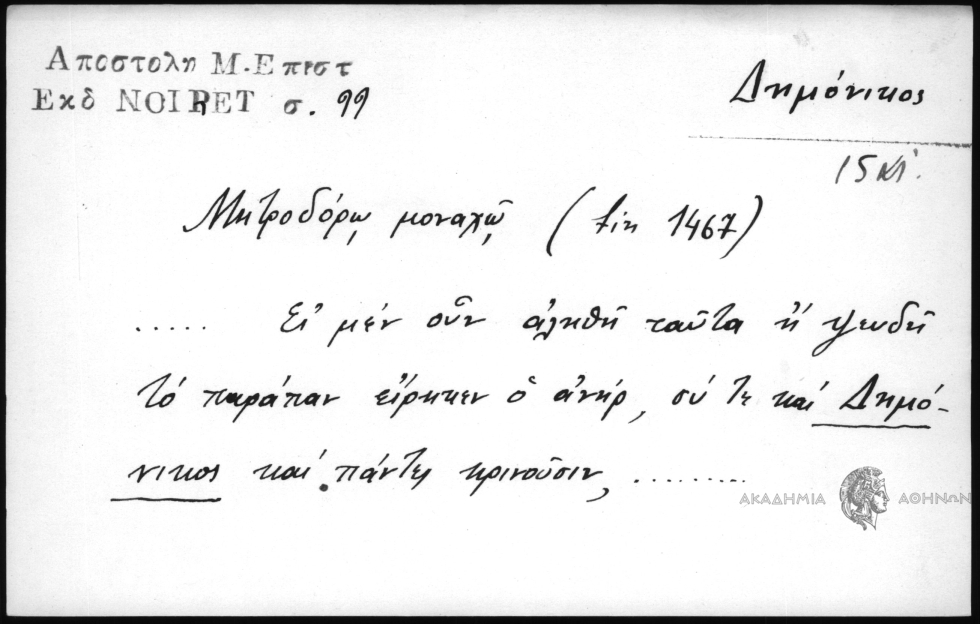 Αποστολη Μ. Επιστ
Εκδ NOIRET σ. 99
Δημόνικος
15 κ.
Μητροδόρῳ μοναχῷ ( 1467)
..... Εἰ μέν οὖν ἀληθῆ ταῦτα ἤ ψευδῆ
τό παράπαν εἴρηκεν ὁ ἀνήρ, σύ τε καί Δημό-
νικος καί πάντες κρινοῦσιν, .........
ΑΚΑΔΗΜΙΑ ΑΘΗΝΩΝ